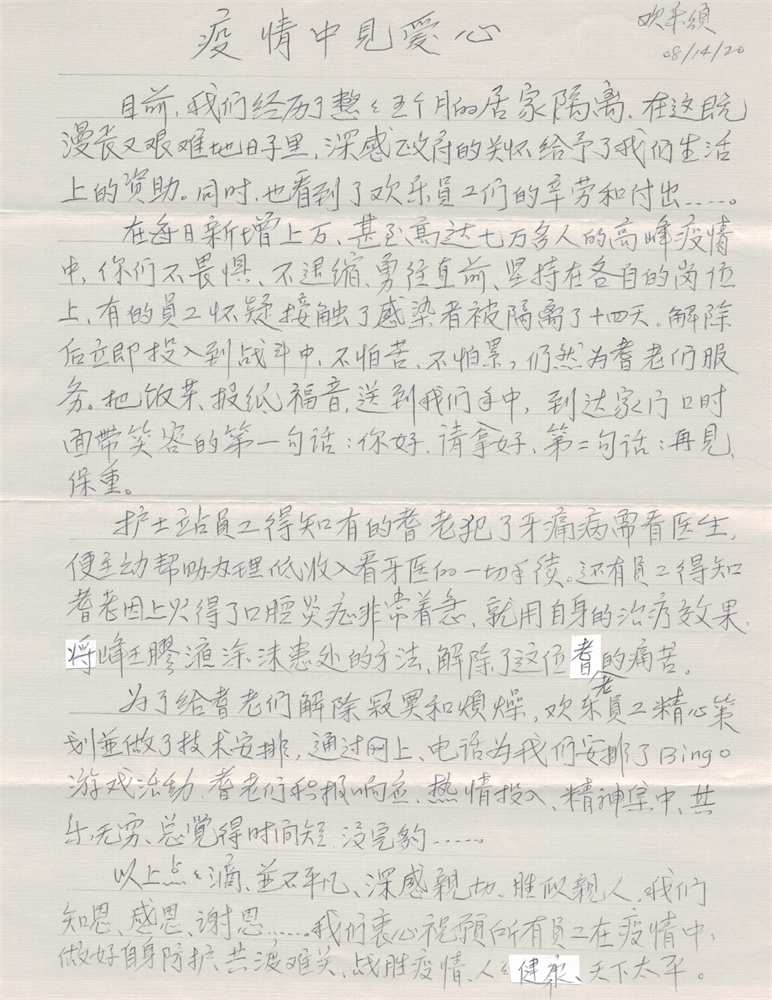 疫情中見爱心
欢乐頌
08/14/20
目前,我们经历了整々五个月的居家隔离,在这既
漫长又艰难地日子里,深感政府的关怀给予了我们生活
上的资助。同时,也看到了欢乐員工们的辛劳和付出……。
在每日新增上万、甚至高达七万多人的高峰疫情
中,你们不畏惧、不退缩、勇往直前、坚持在各自的岗位
上,有的員工怀疑接触了感染者被隔离了十四天。解除
后立即投入到战斗中,不怕苦、不怕累,仍然为耆老们服
务。把饭菜、报纸福音,送到我们手中,到达家门口时
面带笑容的第一句话:你好,请拿好,第二句话:再見,
保重。
护士站員工得知有的耆老犯了牙痛病需看医生,
便主动帮助办理低收入看牙医的一切手续。还有員工得知
耆老因上火得了口腔炎症非常着急,就用自身的治疗效果,
将峰王膠液涂沫患处的方法,解除了这位耆老的痛苦。
为了给耆老们解除寂寞和煩燥,欢乐員工精心策
划並做了技术安排,通过网上、电话为我们安排了Bingo
游戏活动,耆老们积极响应、热情投入、精神集中、其
乐无穷、总覺得时间短,没完够……。
以上点々滴,並不平凡、深感親切、胜似親人,我们
知恩、感恩、谢恩……我们衷心祝願所有員工在疫情中,
做好自身防护、共渡难关、战胜疫情、人々健康、天下太平。